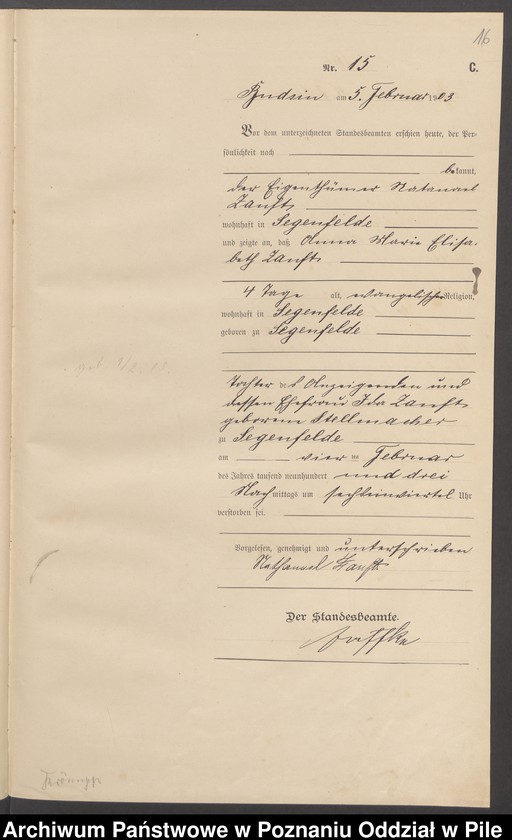 16
Nr. 15 C.
Budsin am 5. Februar 1903
Vor dem unterzeichneten Standesbeamten erschien heute, der Per-
sönlichkeit nach
bekannt,
der Eigenthümer Natanael
Zanft
wohnhaft in Segenfelde
und zeigte an, daß Anna Marie Elisa-
beth Zanft
4 Tage alt, evangelischer Religion,
wohnhaft in Segenfelde
geboren zu Segenfelde
geb. 1/2. 03
Tochter des Anzeigenden und
dessen Ehefrau Ida Zanft
geborene Stellmacher
zu Segenfelde
am vier ten Februar
des Jahres tausend neunhundert und drei
Nachmittags um sechseinviertel Uhr
verstorben sei.
Vorgelesen, genehmigt und unterschrieben
Nathanael Zanft
Der Standesbeamte.
Archiwum Państwowe w Poznaniu Oddział w Pile